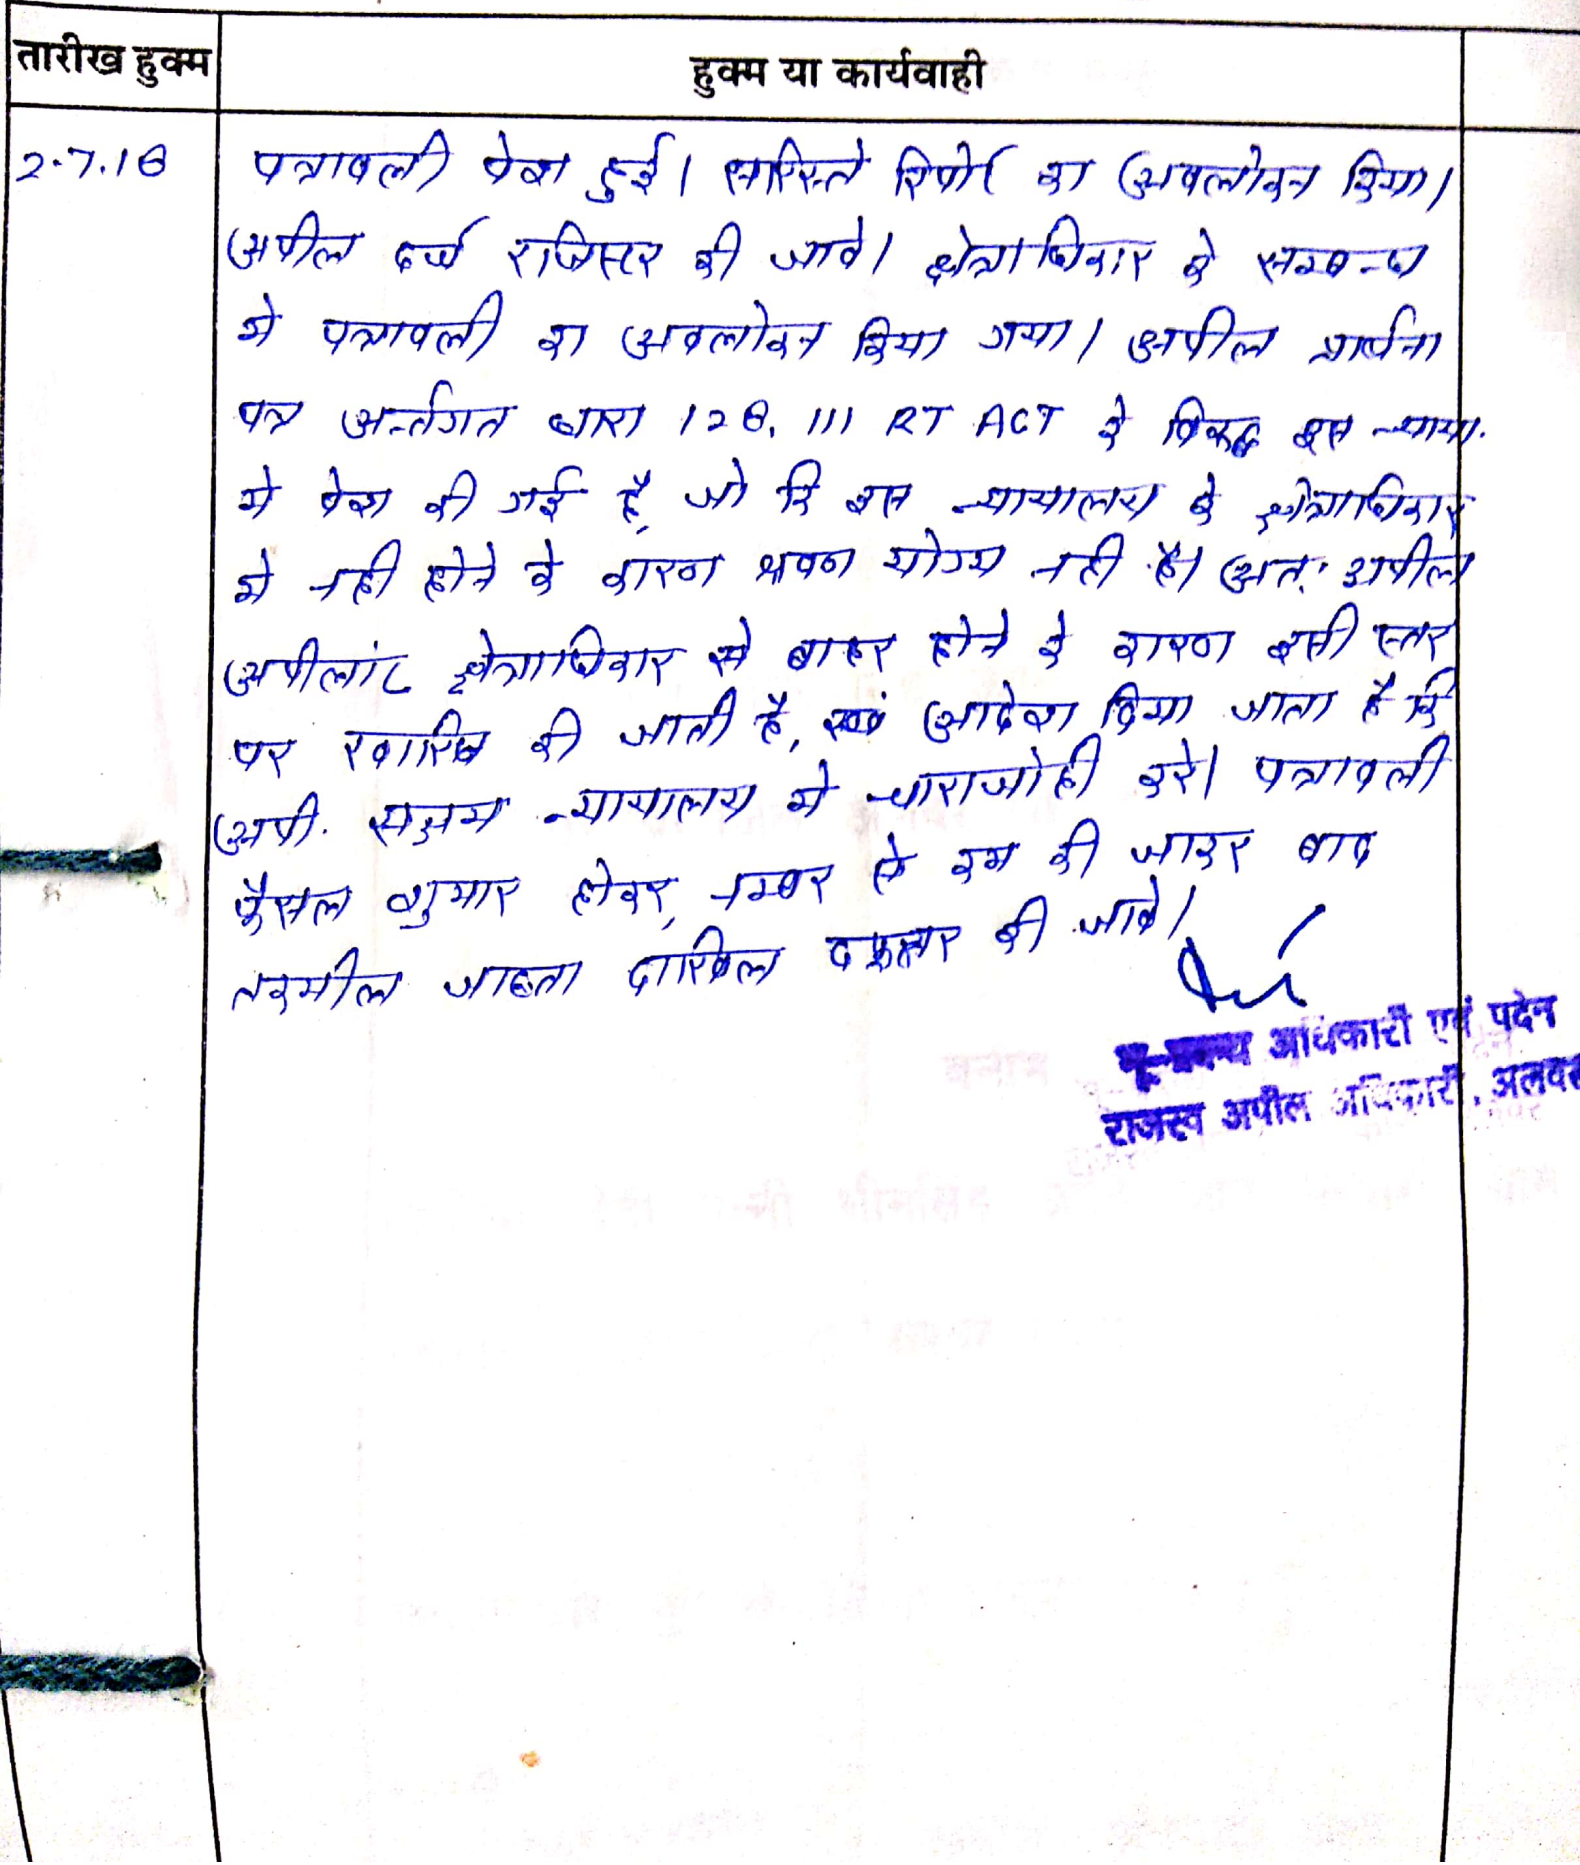 तारीख हुक्म
हुक्म या कार्यवाही
2.7.18
पत्रावली पेश हुई। सरिस्ते रिपोर्ट का अवलोकन किया।
अपील दर्ज रजिस्टर की जावे। क्षेत्राधिकार के सम्बन्ध
मे पत्रावली का अवलोकन किया गया। अपील प्रार्थना
पत्र अर्न्तगत धारा 128, 111 RT ACT के विरूद्ध इस न्याया.
मे पेश की गई है, जो कि इस न्यायालय के क्षेत्राधिकार
मे नही होने के कारण श्रवण योग्य नही है। अत: अपील
अपीलांट क्षेत्राधिकार से बाहर होने के कारण इसी स्तर
पर खारिज की जाती है, एवं आदेश दिया जाता है कि
अपी. सक्षम न्यायालय मे चाराजोही करे। पत्रावली
फैसल शुमार होकर, नम्बर से कम की जाकर बाद
तकमील जाब्ता दाखिल दफ्तर की जावे।
भू-प्रबन्ध अधिकारी एवं पदेन
राजस्व अपील अधिकारी, अलवर